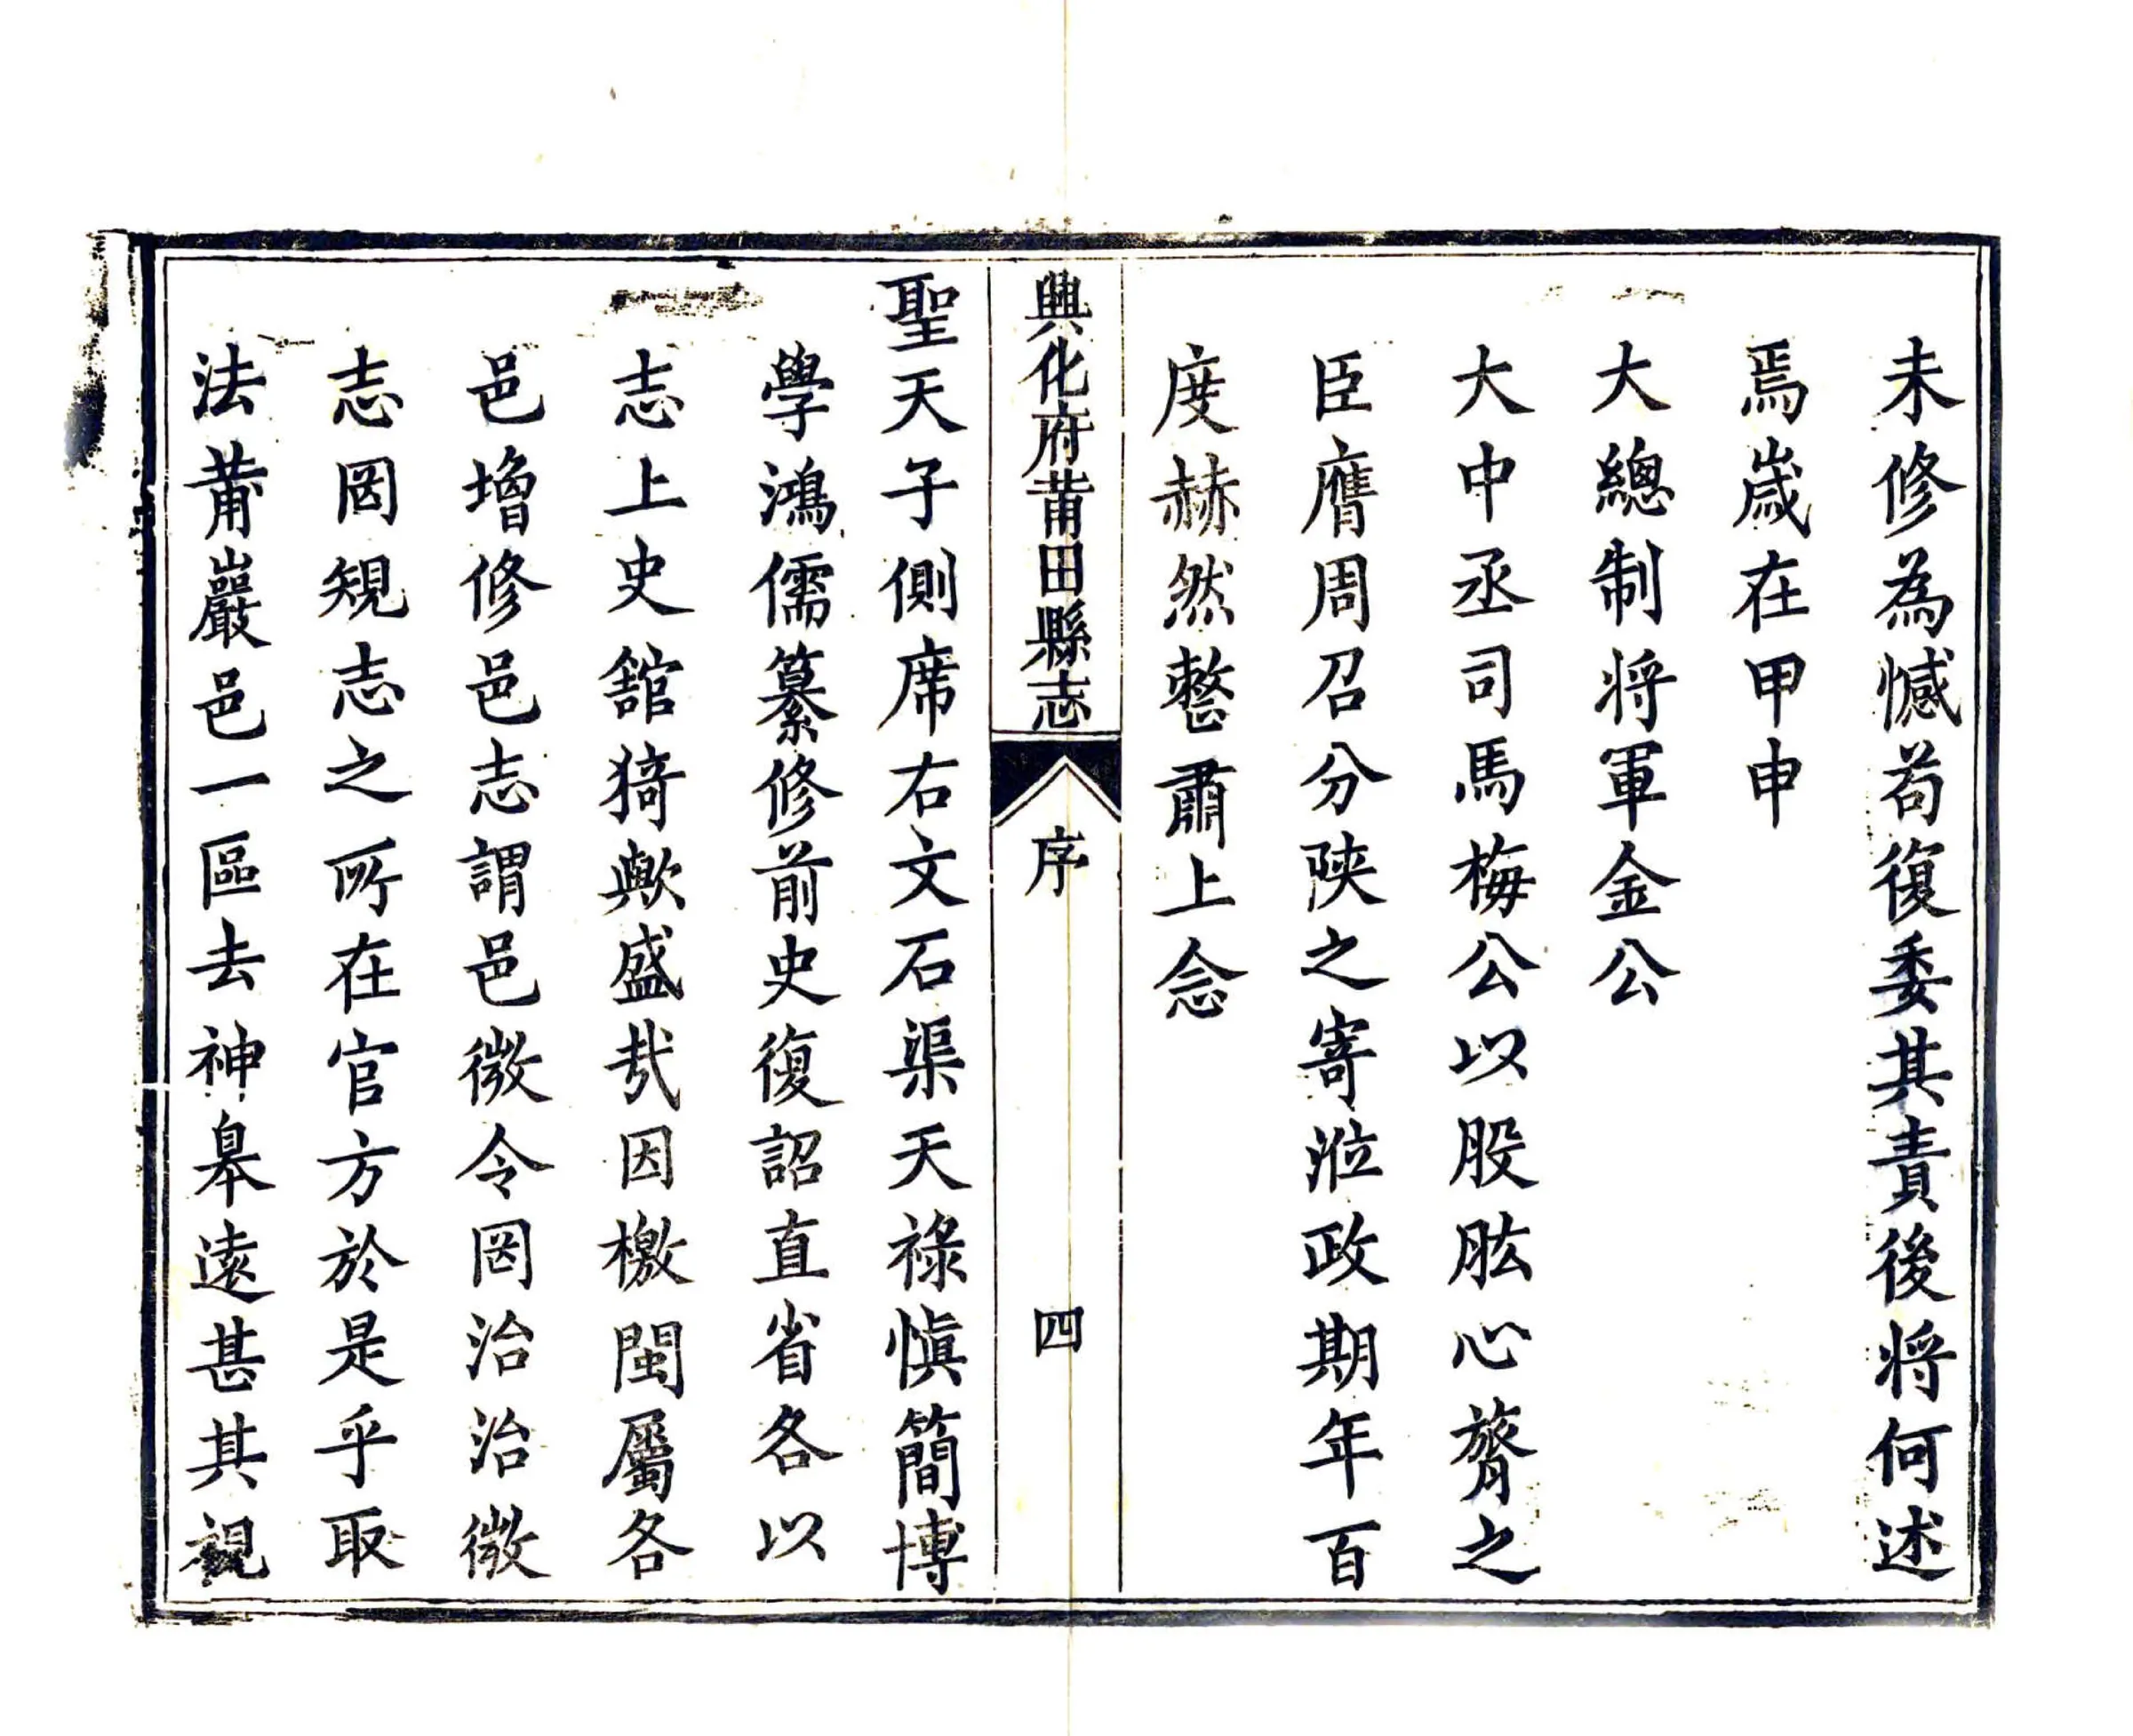 未修為憾苟復委其責後將何述
焉嵗在甲申
大總制将軍金公
大中丞司馬梅公以股肱心膂之
臣膺周召分陝之寄涖政期年百
度赫然整肅上念
興化府莆田縣志 序 四
聖天子側席右文石渠天祿愼簡博
學鴻儒纂修前史復詔直省各以
志上史舘猗歟盛哉因檄閩屬各
邑增修邑志謂邑微令罔治治微
志罔規志之所在官方於是乎取
法莆巖邑一區去神皋遠甚其視